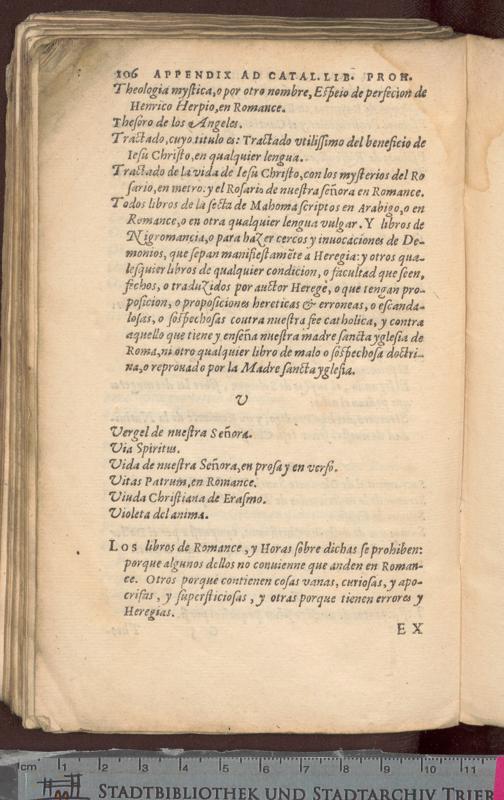 106 APPENDIX AD CATAL. LIB. PROH.
Theologia mystica, o por otro nombre, Espeio de perfecion de
Henrico Herpio, en Romance.
Thesoro de los Angeles.
Tractado, cuyo titulo es: Tractado utilissimo del beneficio de
Iesu Christo, en qualquier lengua.
Tractado de la vida de Iesu Christo, con los mysterios del Ro
sario, en metro: y el Rosario de nuestra señora en Romance.
Todos libros de la secta de Mahoma scriptos en Arabigo, o en
Romance, o en otra qualquier lengua vulgar. Y libros de
Nigromancia, o para hazer cercos y inuocaciones de De-
monios, que sepan manifiestamēte a Heregia: y otros qua-
lesquier libros de qualquier condicion, o facultad que seen,
fechos, o traduzidos por auctor Herege, o que tengan pro-
posicion, o proposiciones hereticas & erroneas, o escanda-
losas, o sospechosas coutra nuestra fee catholica, y contra
aquello que tiene y enseña nuestra madre sancta yglesia de
Roma, ni otro qualquier libro de malo o sospechosa doctri-
na, o reprouado por la Madre sancta yglesia.
V
Vergel de nuestra Señora.
Via Spiritus.
Vida de nuestra Señora, en prosa y en verso.
Vitas Patrum, en Romance.
Viuda Christiana de Erasmo.
Violeta del anima.
Los libros de Romance, y Horas sobre dichas se prohiben:
porque algunos dellos no conuienne que anden en Roman-
ce. Otros porque contienen cosas vanas, curiosas, y apo-
crifas, y supersticiosas, y otras porque tienen errores y
Heregias.
EX
cm 1 2 3 4 5 6 7 8 9 10 11
STADTBIBLIOTHEK UND STADTARCHIV TRIER